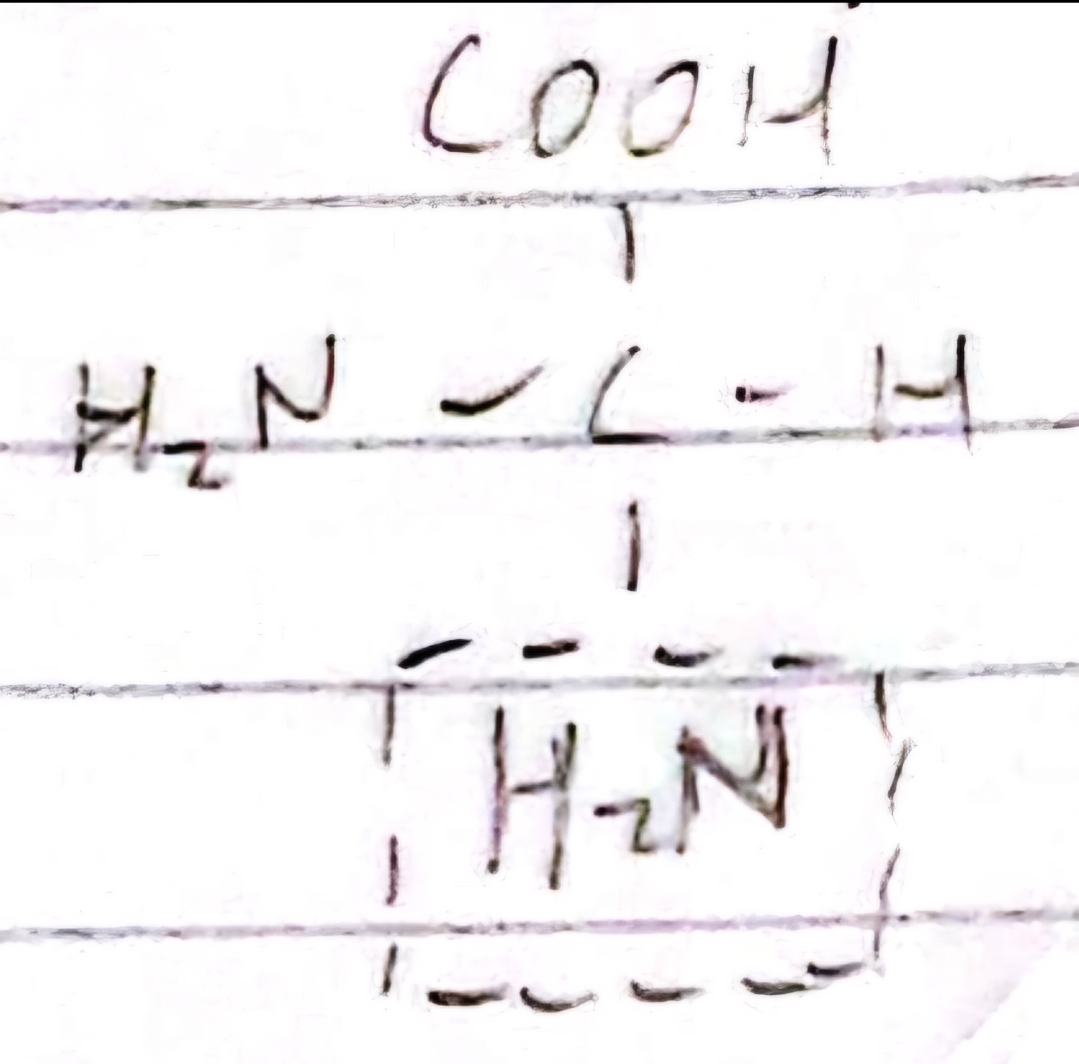 COOH
H2N - C - H
H2N